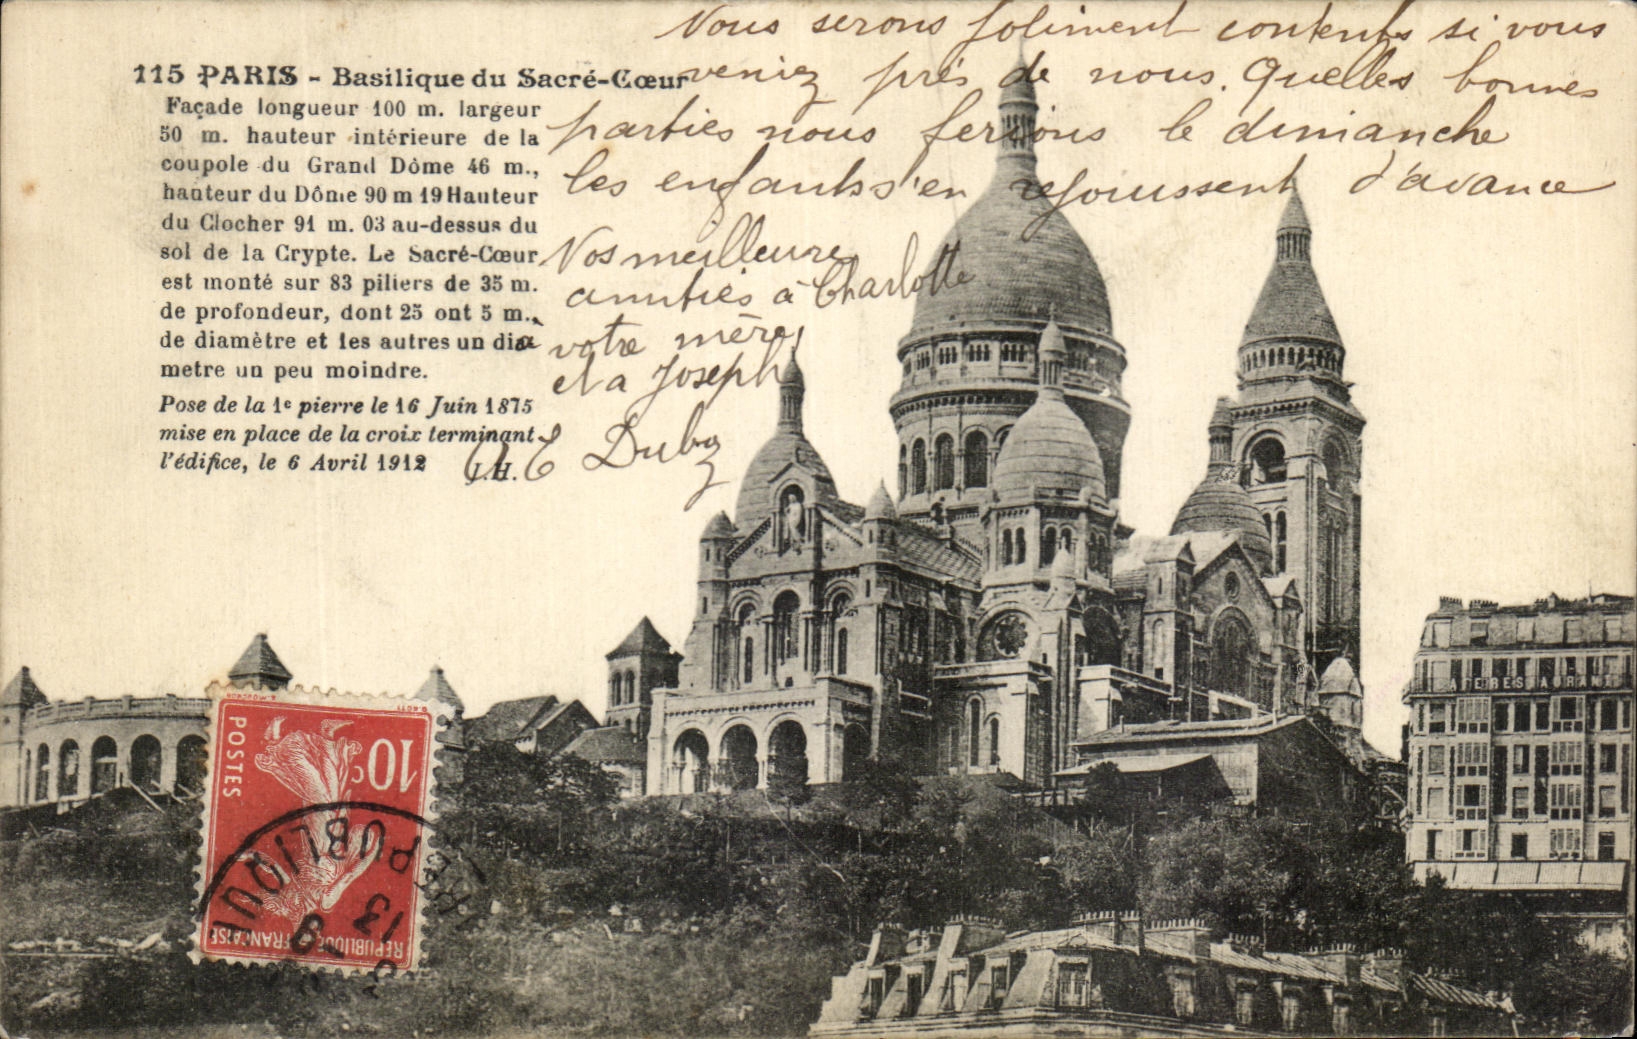 Nous serons joliment contents si vous
veniez près de nous. Quelles bonnes
parties nous ferions le dimanche
les enfants s'en rejouissent d'avance
Nos meilleures
amitiés à Charlotte
votre mère
et a Joseph
115 PARIS - Basilique du Sacré-Cœur
Façade longueur 100 m. largeur
50 m. hauteur intérieure de la
coupole du Grand Dôme 46 m.,
hauteur du Dôme 90 m 19 Hauteur
du Clocher 91 m. 03 au-dessus du
sol de la Crypte. Le Sacré-Cœur
est monté sur 83 piliers de 35 m.
de profondeur, dont 25 ont 5 m.,
de diamètre et les autres un dia
metre un peu moindre.
Pose de la 1e pierre le 16 Juin 1875
mise en place de la croix terminant
l'édifice, le 6 Avril 1912
J.H.
CAFE RESTAURANT
10c
POSTES
REPUBLIQUE FRANÇAISE
PUBLIQUE
13